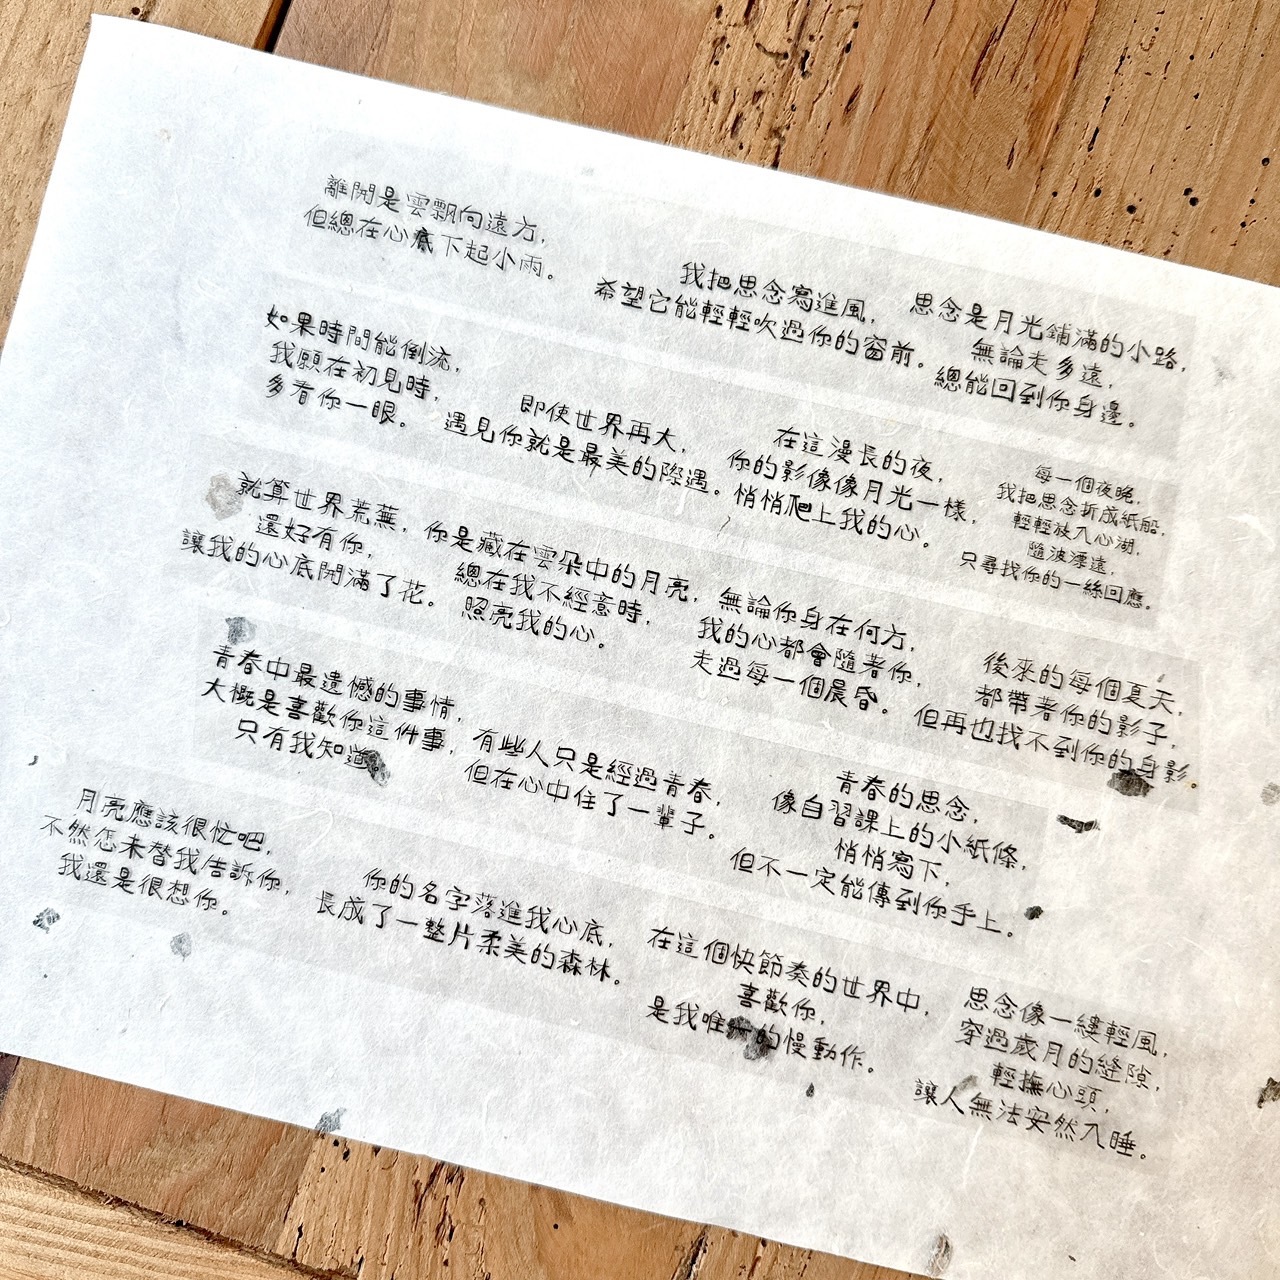 離開是雲飄向遠方，
但總在心底下起小雨。
我把思念寫進風，
希望它能輕輕吹過你的窗前。
思念是月光鋪滿的小路，
無論走多遠，
總能回到你身邊。
如果時間能倒流，
我願在初見時，
多看你一眼。
即使世界再大，
遇見你就是最美的際遇。
在這漫長的夜，
你的影像像月光一樣，
悄悄爬上我的心。
每一個夜晚，
我把思念折成紙船，
輕輕放入心湖，
隨波漂遠，
只尋找你的一絲回應。
就算世界荒蕪，
還好有你，
讓我的心底開滿了花。
你是藏在雲朵中的月亮，
總在我不經意時，
照亮我的心。
無論你身在何方，
我的心都會隨著你，
走過每一個晨昏。
後來的每個夏天，
都帶著你的影子，
但再也找不到你的身影。
青春中最遺憾的事情，
大概是喜歡你這件事，
只有我知道。
有些人只是經過青春，
但在心中住了一輩子。
青春的思念，
像自習課上的小紙條，
悄悄寫下，
但不一定能傳到你手上。
月亮應該很忙吧，
不然怎未替我告訴你，
我還是很想你。
你的名字落進我心底，
長成了一整片柔美的森林。
在這個快節奏的世界中，
喜歡你，
是我唯一的慢動作。
思念像一縷輕風，
穿過歲月的縫隙，
輕撫心頭，
讓人無法安然入睡。